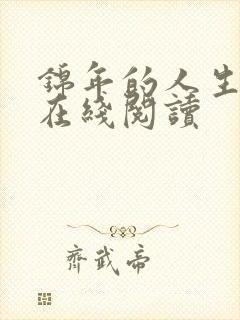 錦年的人生
在綫閱讀
齊武帝